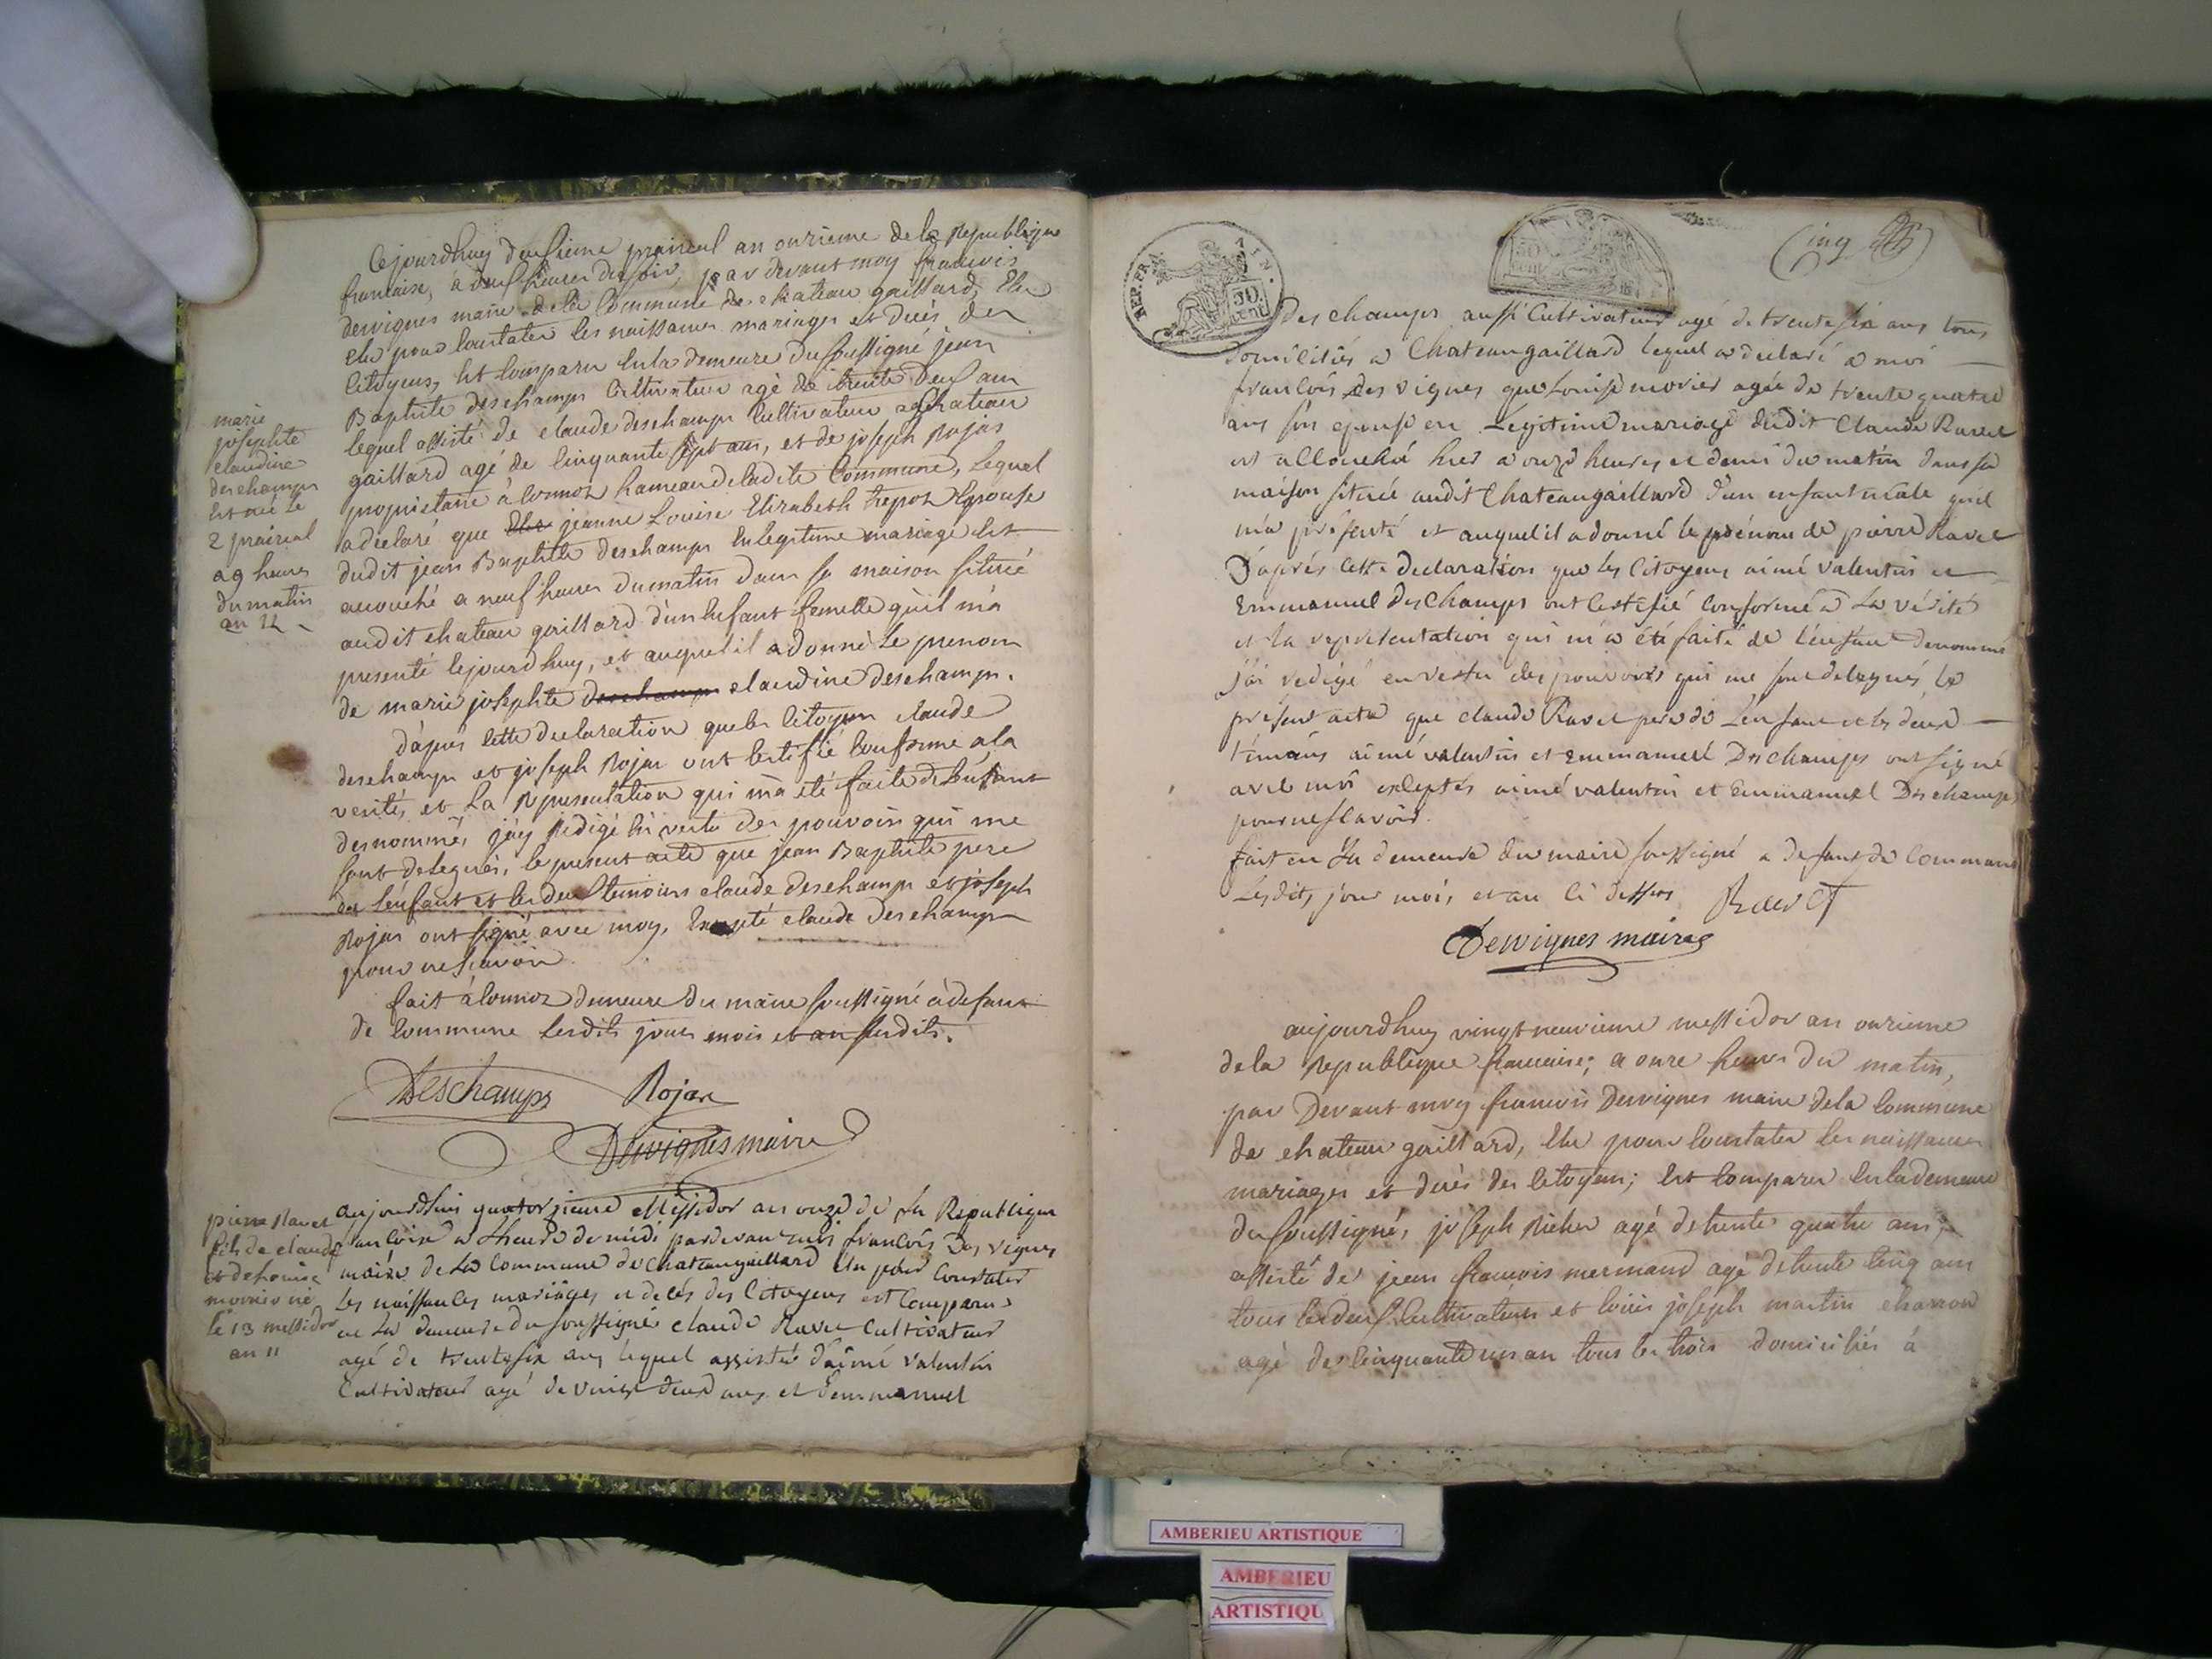 Cejourdhuy deusieme prairial an onzieme de la Republique
francaise, à deus heures du soir, par devant moy francois
dervignes maire de la Commune de chateau gaillard, Elu
Elu pour Constater les naissances mariages et décés des
Citoyens, est Comparu en la demeure du soussigné jean
Baptiste deschamps Cultivateur agé de trente deus ans
lequel assisté de claude deschamps Cultivateur a chateau
gaillard agé de cinquante sept ans, et de joseph Rojas
proprietaire à Cormoz hameau de ladite Commune, Lequel
a declaré que jeanne Louise Elizabeth trepoz Epouse
dudit jean Baptiste deschamps en legitime mariage est
accouché a neuf heures du matin dans sa maison situeé
audit chateau gaillard d'un Enfant femelle qu'il m'a
presenté cejourdhuy, et auquel il a donné le prenom
de marie josephte deschamps claudine deschamps.
d'apres cette declaration que les citoyens claude
deschamps et joseph Rojas ont certifié conforme a la
verité, et La Representation qui m'a été faite de l'enfant
denommé, j'ay Redigé En vertu des pouvoirs qui me
sont delegués, le present acte que jean Baptiste pere
de l'enfant et les deus temoins claude deschamps et joseph
Rojas ont signé avec moy, Excepté claude deschamps
pour ne scavoir.
fait à Cormoz demeure du maire soussigné à defaut
de Commune lesdits jours mois et an susdits.
Deschamps Rojas
Dervignes maire
marie
josephte
claudine
deschamps
est né le
2 prairial
a 9 heures
du matin
an 11
pierre Ravet
fils de claude
et de Louise
morier né
le 13 messidor
an 11
aujourdhui quatorzieme Messidor an onze de la Republique
francoise a Lheure de midi pardevant moi francois Des vignes
maire de La Commune de Chateaugaillard Elu pour Constater
les naissances mariages et décés des Citoyens est Comparus
en La demeure du soussigné claude Ravet Cultivateur
agé de trente six ans lequel assisté d'aimé valentin
Cultivateur agé de vingt deux ans et d'emmanuel
REP. FRA. AIN.
50 cent
Cinq
Deschamps aussi Cultivateur agé de trente six ans tous
domiciliés a Chateaugaillard lequel a declaré a moi
francois Des vignes que Louise morier agée de trente quatre
ans son epouse en Legitime mariage dudit Claude Ravet
est allouché hier a onze heures et demi du matin dans sa
maison située audit Chateaugaillard d'un enfant male qu'il
m'a présenté et auquel il a donné le prénom de pierre Ravet
D'aprés Cette Declaration que les Citoyens aimé valentin et
Emmanuel Deschamps ont Certifié Conforme a La vérité
et la representation qui m'a été faite de l'enfant denommé
J'ai redigé en vertu des pouvoirs qui me sont delegués le
présent acte que claude Ravet pere de L'enfant et les deux
temoins aimé valentin et Emmanuel Deschamps ont signé
avec moi exceptés aimé valentin et Emmanuel Deschamps
pour ne scavoir.
fait en La demeure du maire soussigné a defaut de Commune
Lesdits jour mois et an Ci dessus Ravet
Dervignes maire
aujourdhuy vingt neuvieme messidor an onzieme
de la Republique francaise; a onze heures du matin,
par Devant moy francois Dervignes maire de la Commune
de chateau gaillard, Elu pour Constater les naissances
mariages et décés des Citoyens; Est Comparu En la demeure
du soussigné, joseph Richer agé de trente quatre ans,
assisté de jean francois mermand agé de trente cinq ans
tous les deus Cultivateurs et louis joseph martin charron
agé de Cinquante un an tous les trois domiciliés à
AMBERIEU ARTISTIQUE
AMBERIEU
ARTISTIQU